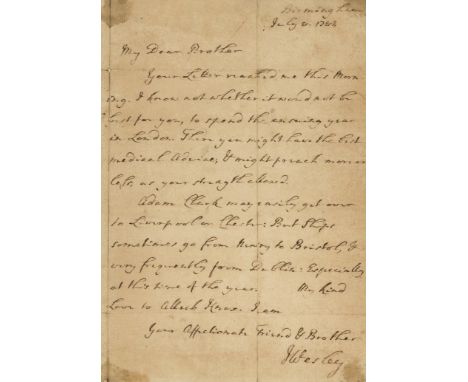 Birmingham
July 8. 1782
My Dear Brother
Your Letter reached me this Morn
ing. I know not whether it would not be
best for you, to spend the ensuing year
in London. There you might have the best
medical Advice, & might preach more or
less, as your strength allowed.
Adam Clark may easily get over
to Liverpool or Chester: But Ships
sometimes go from Newry to Bristol, &
very frequently from Dublin: Especially
at this time of the year. My kind
Love to Alleck Knox. I am
Your Affectionate Friend & Brother
J Wesley